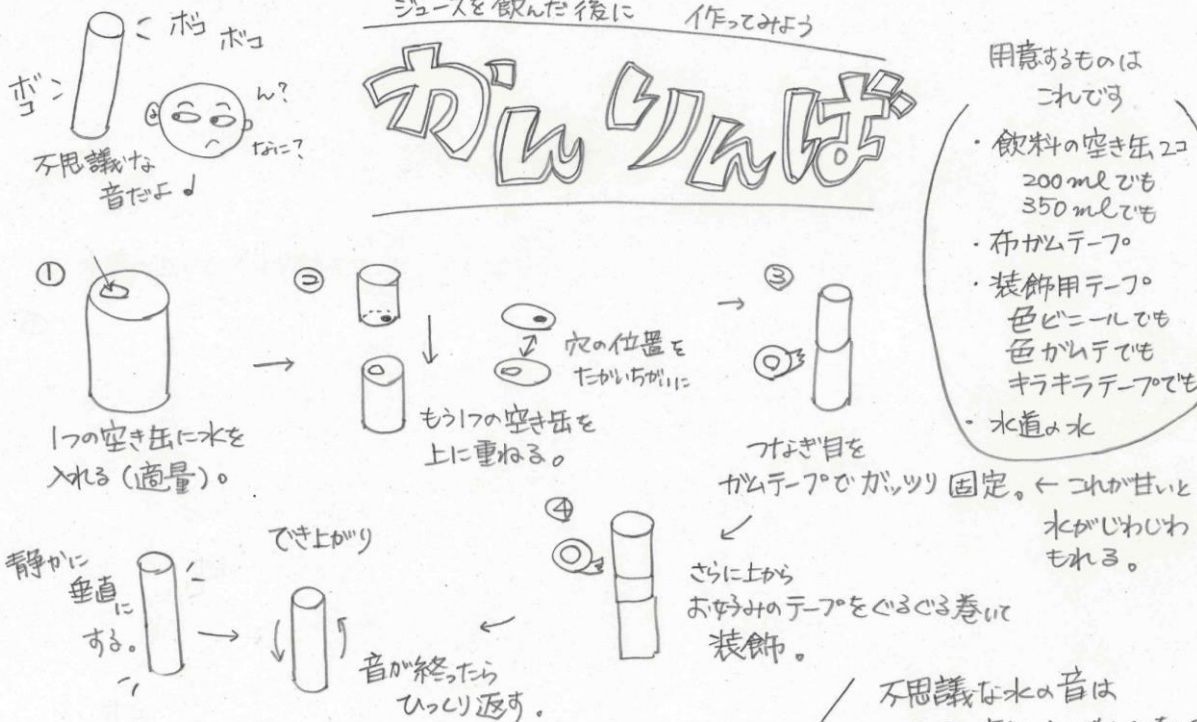 ジュースを飲んだ後に 作ってみよう
かんりんば
ボコ
ボコ
ボコ
ん?
なに?
不思議な
音だよ♩
用意するものは
これです
・飲料の空き缶2コ
200mlでも
350mlでも
・布ガムテープ
・装飾用テープ
色ビニールでも
色ガムテでも
キラキラテープでも
・水道の水
①
1つの空き缶に水を
入れる(適量)。
②
穴の位置を
たがいちがいに
もう1つの空き缶を
上に重ねる。
③
つなぎ目を
ガムテープでガッツリ固定。←これが甘いと
水がじわじわ
もれる。
④
さらに上から
お好みのテープをぐるぐる巻いて
装飾。
でき上がり
音が終ったら
ひっくり返す.
静かに
垂直に
する。
不思議な水の音は